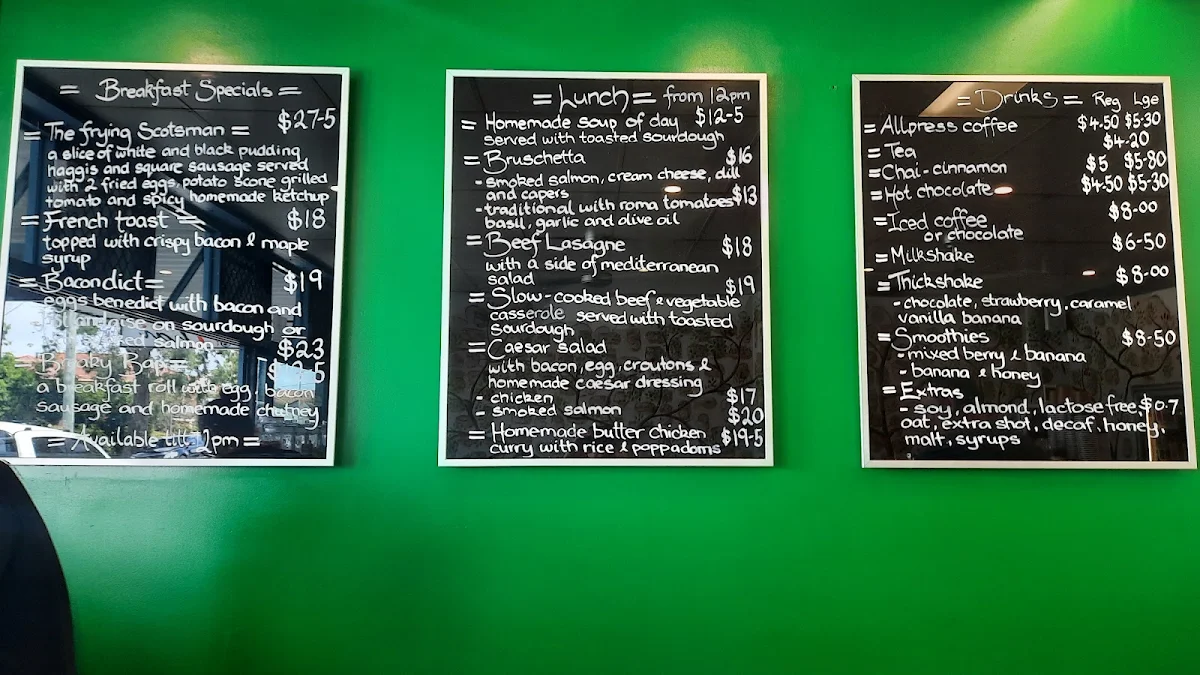 = Breakfast Specials =
= The frying Scotsman = $27-5
a slice of white and black pudding
haggis and square sausage served
with 2 fried eggs, potato scone grilled
tomato and spicy homemade ketchup
= French toast = $18
topped with crispy bacon & maple
syrup
= Bacondict = $19
eggs benedict with bacon and
hollandaise on sourdough or
salmon $23
= Breaky Bap =
a breakfast roll with egg, bacon
sausage and homemade chutney
= Available till 12pm =
= Lunch = from 12pm
= Homemade soup of day $12-5
served with toasted sourdough
= Bruschetta $16
- smoked salmon, cream cheese, dill
and capers
- traditional with roma tomatoes $13
basil, garlic and olive oil
= Beef Lasagne $18
with a side of mediterranean
salad
= Slow-cooked beef & vegetable $19
casserole served with toasted
sourdough
= Caesar salad
with bacon, egg, croutons &
homemade caesar dressing
- chicken $17
- smoked salmon $20
= Homemade butter chicken $19-5
curry with rice & poppadoms
= Drinks = Reg Lge
= Allpress coffee $4-50 $5-30
= Tea $4-20
= Chai - cinnamon $5 $5-80
= Hot chocolate $4-50 $5-30
= Iced coffee $8-00
or chocolate
= Milkshake $6-50
= Thickshake $8-00
- chocolate, strawberry, caramel
vanilla banana
= Smoothies $8-50
- mixed berry & banana
- banana & honey
= Extras
- soy, almond, lactose free, $0-7
oat, extra shot, decaf, honey,
malt, syrups